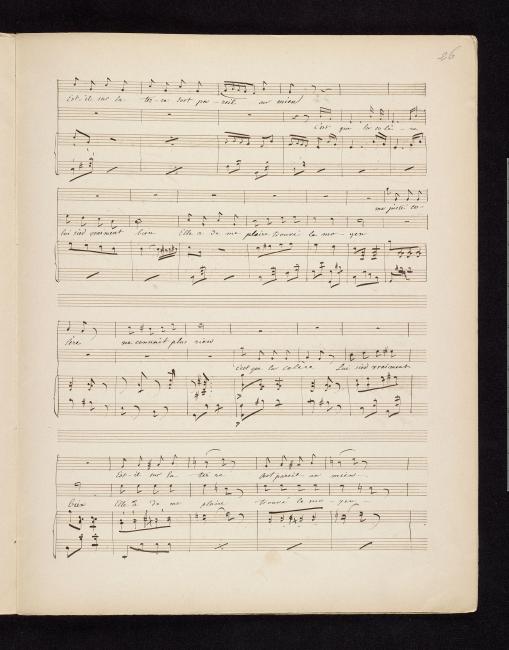 26
Est-il sur la ter-re sort pa-reil au mien
C'est que la colè-re
ma juste co-
lui sied vraiment bien Elle a de me plaire trouvé le mo-yen
lère ne connait plus rien
c'est que la colère Lui sied vraiment
Est-il sur la ter-re sort pareil au mien
bien Elle a de me plaire trouvé le mo-yen